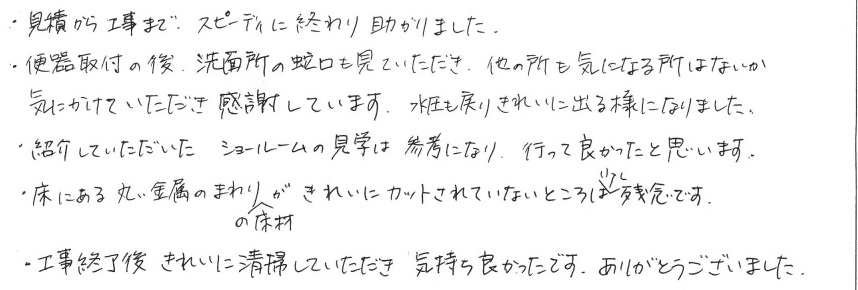 ・見積から工事まで、スピーディに終わり助かりました。
・便器取付の後、洗面所の蛇口も見ていただき、他の所も気になる所はないか
気にかけていただき感謝しています。水圧も戻りきれいに出る様になりました。
・紹介していただいた ショールームの見学は参考になり、行って良かったと思います。
・床にある丸い金属のまわりの床材がきれいにカットされていないところは少し残念です。
・工事終了後きれいに清掃していただき気持ち良かったです。ありがとうございました。